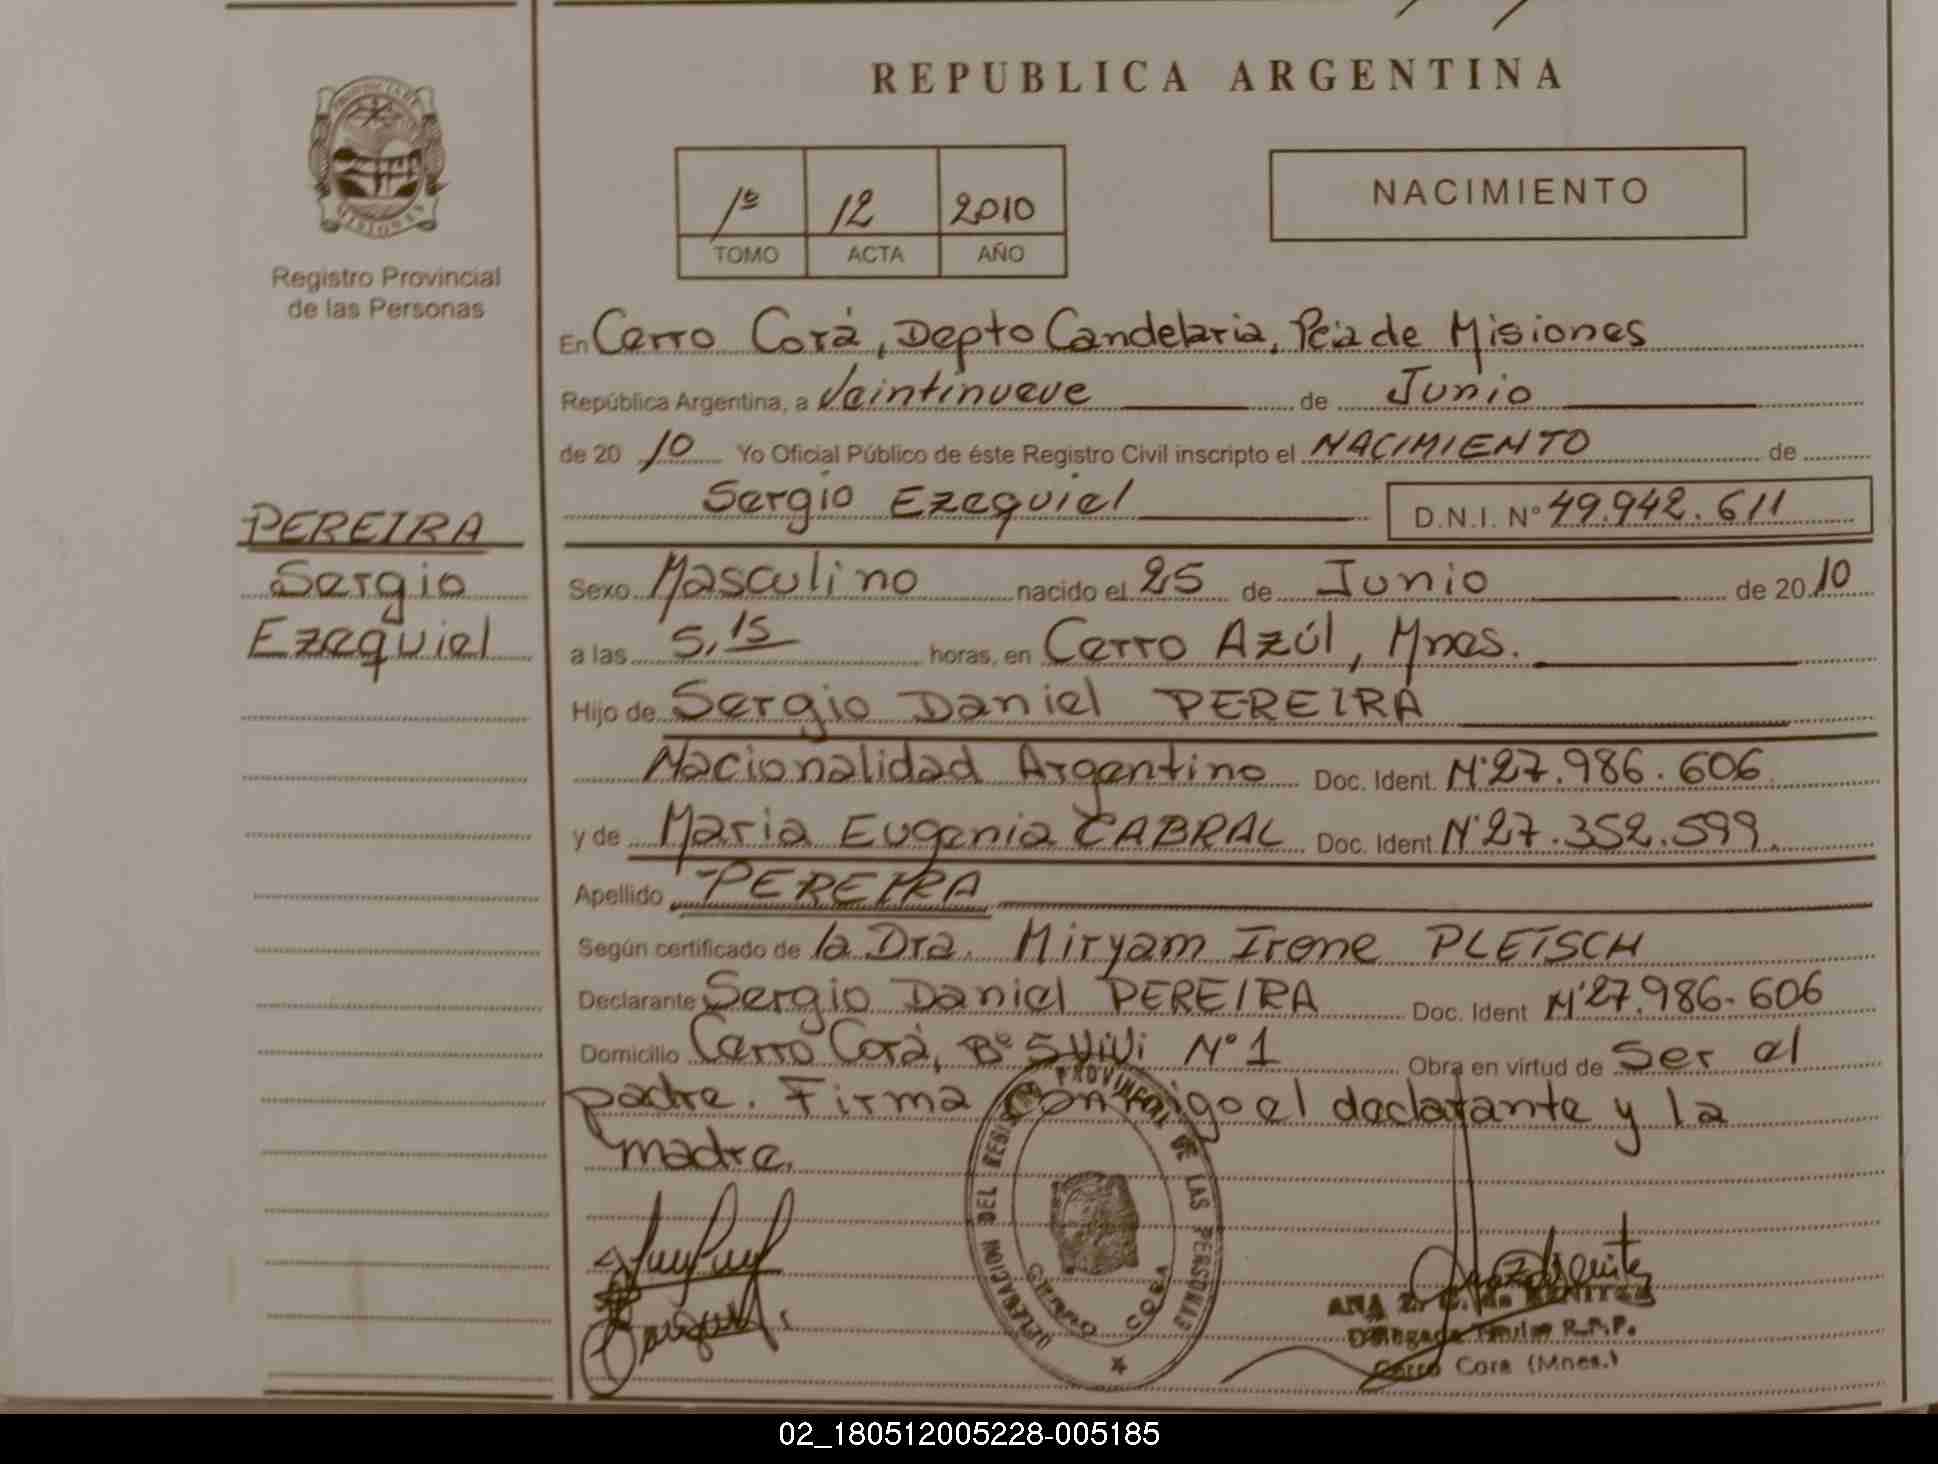 REPUBLICA ARGENTINA
PROVINCIA DE
MISIONES
Registro Provincial
de las Personas
1º 12 2010
TOMO ACTA AÑO
NACIMIENTO
En Cerro Corá, Depto Candelaria, Pcia de Misiones
República Argentina, a Veintinueve de Junio
de 20 10 Yo Oficial Público de éste Registro Civil inscripto el NACIMIENTO de
Sergio Ezequiel D.N.I. Nº 49.942.611
PEREIRA
Sergio
Ezequiel
Sexo Masculino nacido el 25 de Junio de 20 10
a las 5,15 horas, en Cerro Azúl, Mnes.
Hijo de Sergio Daniel PEREIRA
Nacionalidad Argentino Doc. Ident. Nº 27.986.606
y de Maria Eugenia CABRAL Doc. Ident Nº 27.352.599.
Apellido PEREIRA
Según certificado de la Dra. Miryam Irene PLETSCH
Declarante Sergio Daniel PEREIRA Doc. Ident Nº 27.986.606
Domicilio Cerro Corá, Bº S ViVi Nº 1 Obra en virtud de Ser el
padre. Firma conmigo el declarante y la
madre.
DELEGACION DEL REGISTRO PROVINCIAL DE LAS PERSONAS
CERRO CORA
Delegada Titular R.P.P.
Cerro Cora (Mnes.)
02_180512005228-005185